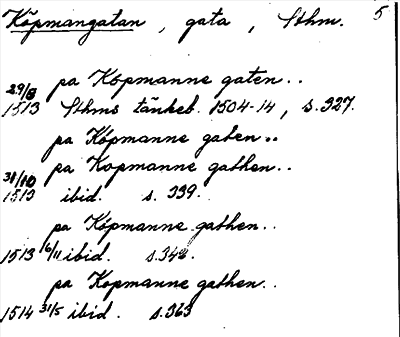 Köpmangatan, gata, Sthm. 5
pa Köpmanne gaten..
29/8
1513 Sthms tänkeb. 1504-14, s. 327.
pa Köpmanne gaten..
pa Kopmanne gathen..
31/10
1513 ibid. s. 339.
pa Köpmanne gathen..
1513 16/11 ibid. s. 342.
pa Kopmanne gathen..
1514 31/5 ibid. s. 363